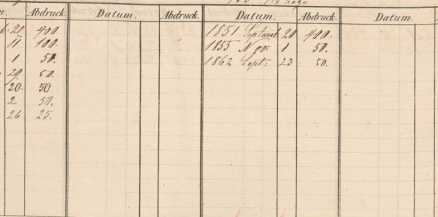 Abdruck. Datum. Abdruck. Datum. Abdruck. Datum.
21 400. 1851 Septemb 20 400.
11 100. 1855 1 50.
1 50. 1862 Sept. 23 50.
20 50.
20. 50
2 50.
26 25.